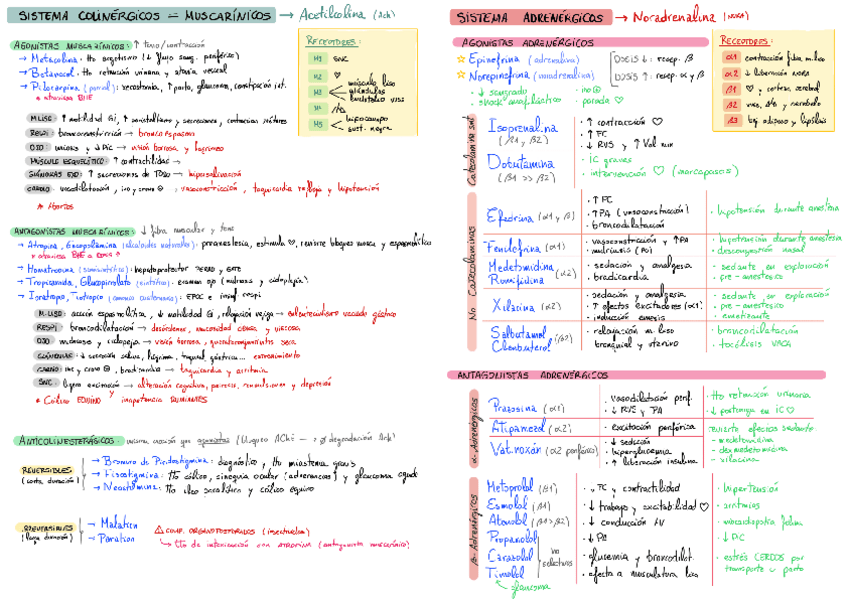 SISTEMA COLINÉRGICOS = MUSCARÍNICOS → Acetilcolina (Ach)
AGONISTAS MUSCARÍNICOS: ↑ tono/contracción
→ Metacolina:
→ Betanecol: tto retención urinaria y atonía vesical
→ Pilocarpina (parcial): xerostomía, ↑ parto, glaucoma, constipación int.
* atraviesa BHE
RECEPTORES:
M1 SNC
M2 ♡
M3 músculo liso
glándulas
M4
M5 hipocampo
sust. negra
M.LISO: ↑ motilidad GI, ↑ peristaltismo y secreciones, contracción
RESPI: broncoconstricción → broncoespasmo
OJO: miosis y ↓ PIC → visión borrosa y lagrimeo
MÚSCULO ESQUELÉTICO: ↑ contractilidad →
GLÁNDULAS EXO: ↑ secreciones de TODO → hipersalivación
CARDIO: vasodilatación, → vasoconstricción, taquicardia refleja y hipotensión
* Abortos
ANTAGONISTAS MUSCARÍNICOS: ↓ fibra muscular y tono
→ Atropina, Escopolamina (alcaloides naturales): preanestesia, estimula ♡, revierte bloqueo vagal y espasmolítico
→ Homatropina (semisintético):
→ Tropicamida, Glucopirrolato (sintético): examen ojo (midriasis y cicloplejia)
→ Ipratropio, Tiotropio (amonio cuaternario): EPOC e respi
M.LISO: acción espasmolítica, ↓ motilidad GI, relajación vejiga → vaciado gástrico
RESPI: broncodilatación →
OJO: midriasis y cicloplejia → visión borrosa, queratoconjuntivitis seca
GLÁNDULAS: ↓ secreción saliva, lágrima, traqueal, gástrica... estreñimiento
CARDIO: bradicardia → taquicardia y arritmia
SNC: ligera excitación → alteración cognitiva, paresia, convulsiones y depresión
* Cólico EQUINO y inapetencia RUMIANTES
ANTICOLINESTERÁSICOS: misma acción que agonistas (bloqueo AChE → ↑ degradación Ach)
REVERSIBLES
(corta duración)
→ Bromuro de Piridostigmina: diagnóstico, tto miastenia gravis
→ Fisostigmina: tto cólico, sinequia ocular (adherencias) y glaucoma agudo
→ Neostigmina: tto íleo paralítico y cólico equino
IRREVERSIBLES
(larga duración)
→ Malatión
→ Paratión
⚠ COMP. ORGANOFOSFORADOS (insecticidas)
↳ tto de intoxicación con ATROPINA (antagonista muscarínico)
SISTEMA ADRENÉRGICOS → Noradrenalina (NORA)
AGONISTAS ADRENÉRGICOS
☆ Epinefrina (adrenalina)
☆ Norepinefrina (noradrenalina)
DOSIS ↓: recep. β
DOSIS ↑: recep. α y β
· ↓ sangrado
· shock anafiláctico
· parada ♡
RECEPTORES:
α1 contracción fibra m. liso
α2 ↓ liberación NORA
β1 ♡ y cerebral
β2
β3 tej. adiposo y lipólisis
Catecolaminas
Isoprenalina
(β1 y β2)
· ↑ contracción ♡
· ↑ FC
Dobutamina
(β1 >> β2)
· IC graves
· intervención ♡ (marcapasos)
No Catecolaminas
Efedrina (α1 y β)
· ↑ FC
· ↑ PA (vasoconstricción)
· broncodilatación
· hipotensión durante anestesia
Fenilefrina (α1)
· vasoconstricción y ↑ PA
· midriasis
· hipotensión durante anestesia
· descongestión nasal
Medetomidina
Romifidina (α2)
· sedación y analgesia
· bradicardia
· sedante en exploración
· pre-anestésico
Xilacina (α2)
· sedación y analgesia
· ↑ efectos excitadores (α1)
· inducción emesis
· sedante en exploración
· pre-anestésico
· emetizante
Salbutamol
Clenbuterol (β2)
· relajación m. liso
bronquial y uterino
· broncodilatación
· tocólisis VACA
ANTAGONISTAS ADRENÉRGICOS
α-Adrenérgicos
Prazosina (α1)
· vasodilatación perif.
· ↓ RVS y PA
· tto retención urinaria
· ↓ postcarga en IC ♡
Atipamezol (α2)
· excitación periférica
Vatinoxán (α2 periféricos)
· ↓ sedación
· hiperglucemia
· ↑ liberación insulina
revierte efectos sedantes
- medetomidina
- dexmedetomidina
- xilacina
β-Adrenérgicos
Metoprolol (β1)
Esmolol (β1)
Atenolol (β1>>β2)
Propanolol
Carazolol
Timolol
no selectivos
→ glaucoma
· ↓ FC y contractilidad
· ↓ trabajo y excitabilidad ♡
· ↓ conducción AV
· ↓ PA
· glucemia y broncodilat.
· efecto a musculatura liso
· hipertensión
· arritmias
· miocardiopatía felina
· ↓ PIC
· estrés CERDOS por
transporte u parto